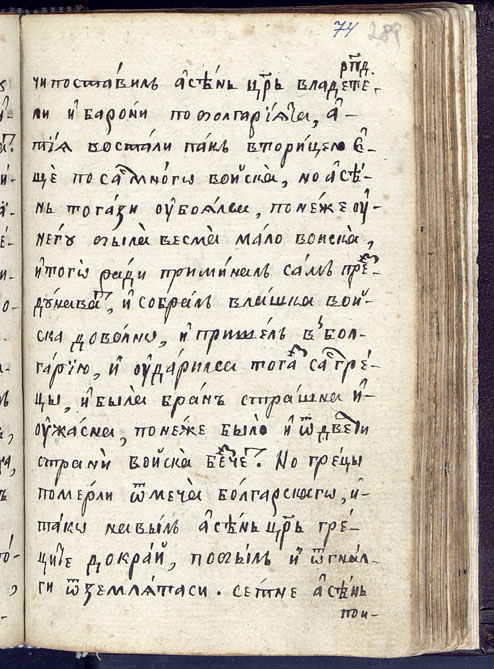 74 289
рпд.
чи поставилъ асѣнь цр҃ь владете-
ли и барони по болгарїѧта, а҆-
тїѧ востали пакъ вторицею е҆-
ще по са многѡ войска, но асѣ-
нь тогази оу҆боялсѧ, понеже оу҆
негу была весма мало воиска,
и тогѡ ради приминалъ самъ пре
дунава, и собралъ влашка вой-
ска доволно, и пришелъ в бол-
гарїю, и оу҆дарилсѧ тога са гре-
цы, и была бранъ страшна и҆
оу҆жасна, понеже было и ѿ двети
страни войска бече. Но грецы
померли ѿ меча болгарскагѡ, и҆
такѡ навылъ асѣнь цр҃ь гре-
ците докрай, побылъ и ѿгнал-
ги ѿ землѧтаси. сетне асѣнь
пои-